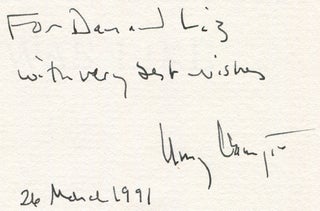 For Dan and Liz
with very best wishes
26 March 1991